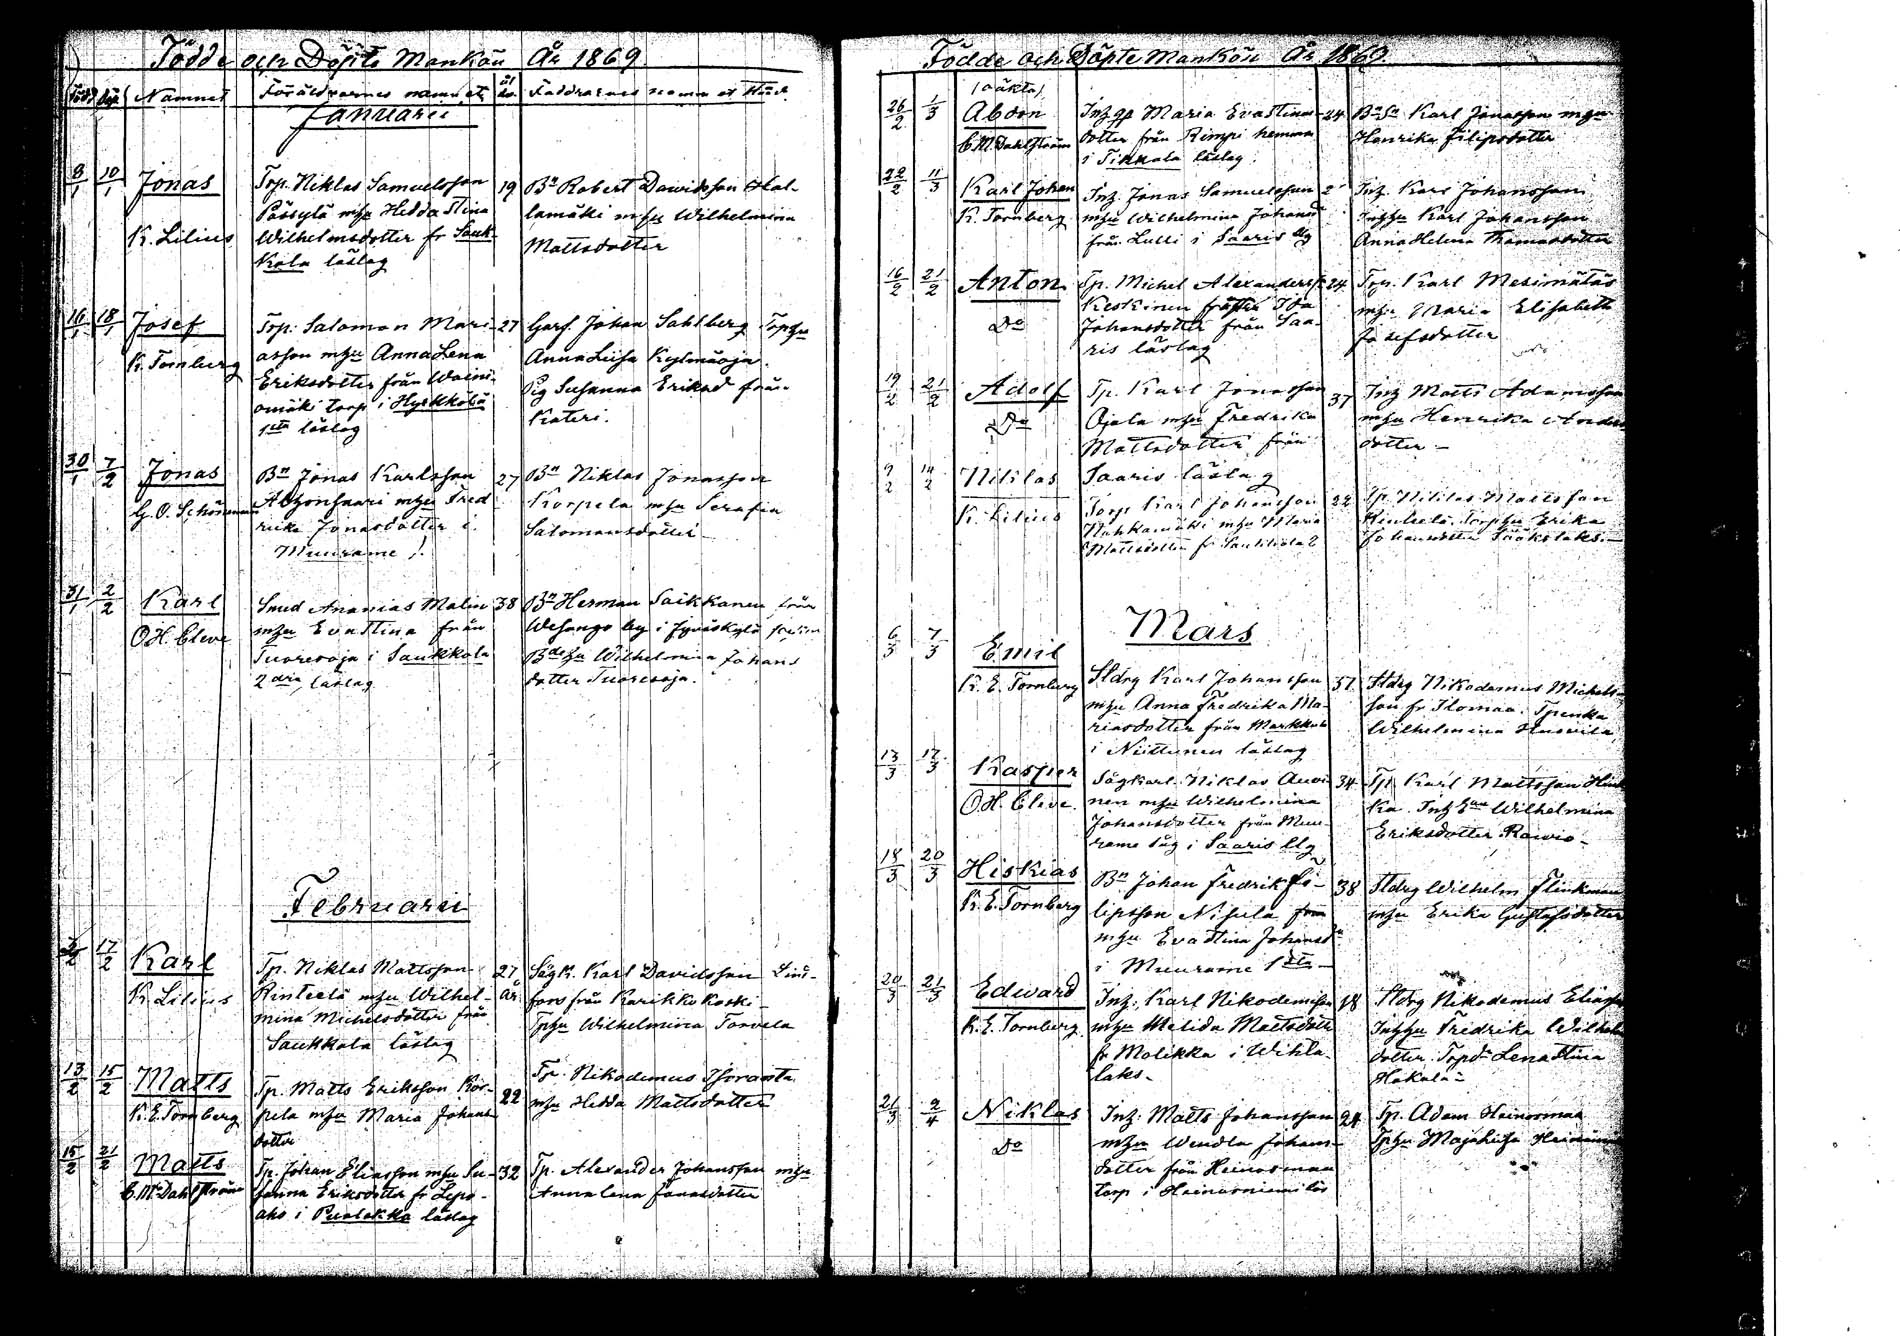 Födde och Döpte Mankön År 1869
Född Döpt Namnet Föräldrarnes namn etc Faddrarnes namn et Hårk.
Januarii
8/1 10/1 Jonas
K. Lilius
Torp. Niklas Samuelsson
mhu Hedda Stina
Wilhelmsdotter fr Sauk-
kola läslag
19
Bn Robert Dawidsson Hal-
lamäki mhu Wilhelmina
Mattsdotter
16/1 18/1 Josef
K. Tornberg
Torp. Salomon Mari-
asson mhu Anna Lena
Eriksdotter från Waini-
omäki torp i Hyrkkölä
1sta läslag
27
Garf. Johan Sahlberg Torphu
Anna Luisa Kylmäoja.
Pig Susanna Eriksd från
Kateri.
30/1 7/2 Jonas
G. O. Schöneman
Bn Jonas Karlsson
mhu Fred-
rika Jonasdotter i
Muurame 1.
27
Bn Niklas Jonasson
Korpela mhu Serafia
Salomonsdotter
31/1 2/2 Karl
O H. Cleve
Smed Ananias Malin
mhu Eva Stina från
Tuoresoja i Saukkola
2dra läslag
38
Bn Herman Saikkanen från
Wesango by i Jyväskylä socken
Bdehu Wilhelmina Johans
dotter Tuoresoja.
Februarii
17/2 Karl
K Lilius
Tp. Niklas Mattsson
Rinteelä mhu Wilhel-
mina Michelsdotter från
Saukkola läslag
27
år
Sågk. Karl Davidsson Lind-
fors från Karikkokoski
Tphu Wilhelmina Torvela
13/2 15/2 Matts
K. E. Tornberg
Tp. Matts Eriksson Kor-
pela mhu Maria Johans
dotter
22
Tp. Nikodemus
mhu Hedda Mattsdotter
15/2 21/2 Matts
C. M. Dahlström
Tp. Johan Eliasson mhu Su-
sanna Eriksdotter fr Lepo-
aho i Puolakka läslag
32
Tp. Alexander Johansson mhu
Anna Lena Jonasdotter
Födde och Döpte Mankön År 1869.
(oäkta)
26/2 1/3 Abdon
C. M. Dahlström
Inhqp Maria Eva Stinas-
dotter från Rimpi hemman
i Tikkala läslag.
24
Karl Jonasson mhu
Henrika Filipsdotter
22/2 11/3 Karl Johan
K. Tornberg
Inh. Jonas Samuelsson
mhu Wilhelmina Johansd
från Lulli i Saaris llg
Inh. Karl Johansson
Inhhu Karl Johansson
Anna Helena Thomasdotter
16/2 21/2 Anton
Do
Tp. Michel Alexanderss
Keskinen Ida
Johansdotter från Saa-
ris läslag
24
Torp. Karl Mesimäläs
mhu Maria Elisabeth
Josefsdotter
19/2 21/2 Adolf
Do
Tp. Karl Jonasson
Ojala mhu Fredrika
Mattsdotter från
Saaris läslag
37
Inh Matts Adamsson
mhu Henrika Anders
dotter -
9/2 14/2 Niklas
K. Lilius
Torp Karl Johansson
Nahkamäki mhu Maria
Mattsdotter fr Saukkola 2
22
Tp. Niklas Mattsson
Rinteelä. Torphu Erika
Johansdotter Sääkslaks. -
Mars
6/3 7/3 Emil
K. E. Tornberg
Stdrg Karl Johansson
mhu Anna Fredrika Ma-
riasdotter från Markkula
i Niittunen läslag
37
Stdrg Nikodemus Michels-
son fr Ilomaa. Tpenka
Wilhelmina
13/3 17/3 Kasper
O. H. Cleve
Sågkarl. Niklas Auvi-
nen mhu Wilhelmina
Johansdotter från Muu-
rame såg i Saaris llg
34
Tp Karl Mattsson
Wilhelmina
Eriksdotter Rawio -
18/3 20/3 Hiskias
K. E. Tornberg
Bn Johan Fredrik Fi-
lipsson Nisula från
mhu Eva Stina Johansd
i Muurame 1sta -
38
Stdrg Wilhelm Flinkman
mhu Erika Gustafsdotter
20/3 21/3 Edward
K. E. Tornberg
Inh. Karl Nikodemsson
mhu Melida Mattsdott
fr Molikka i Wihta-
laks -
28
Stdrg Nikodemus Eliasson
Inhhu Fredrika Wilhelms
dotter. Torpd Lena Stina
Hakala -
21/3 2/4 Niklas
Do
Inh. Matts Johansson
mhu Wendla Johans-
dotter från Heinosmaa
torp i Heinosniemi läs
24
Tp. Adam Heinosmaa
Tphu Maja Lisa